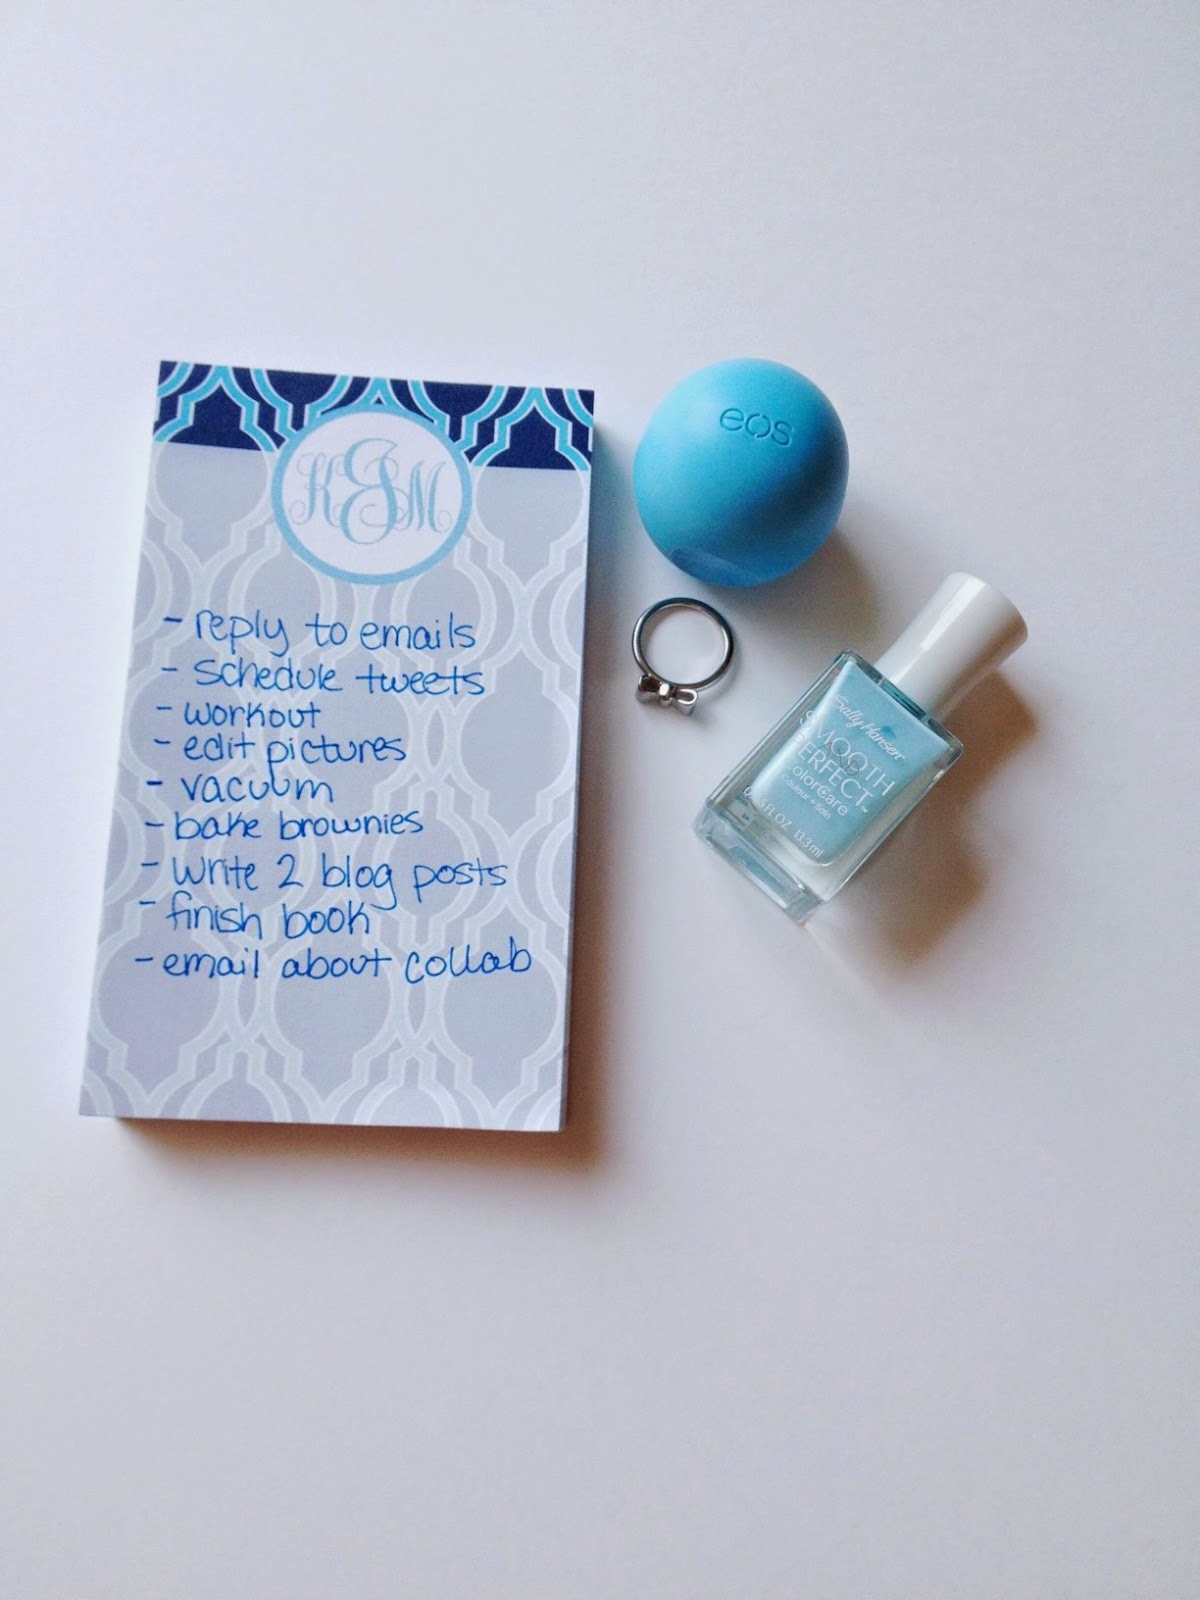 KJM
- reply to emails
- schedule tweets
- workout
- edit pictures
- vacuum
- bake brownies
- write 2 blog posts
- finish book
- email about collab
eos
Sally Hansen
SMOOTH
PERFECT™
Color Care
couleur + soin
FL OZ 13.3 ml